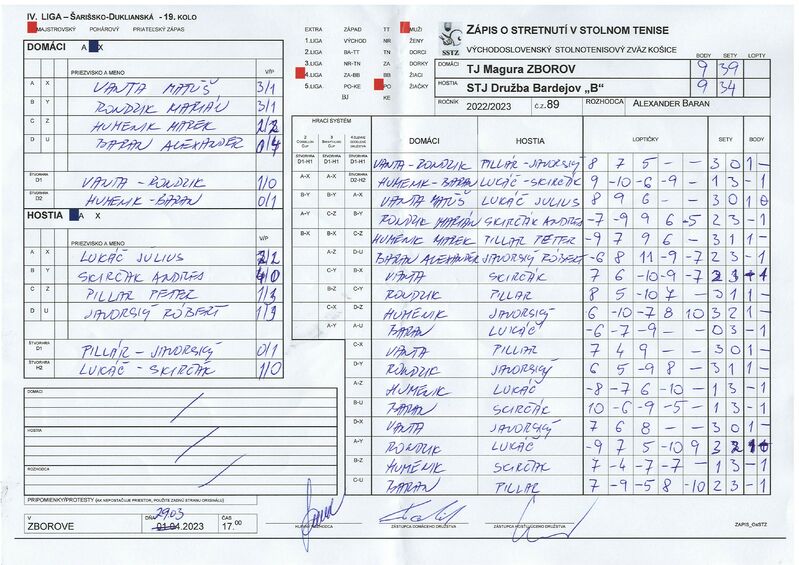 IV. LIGA – ŠARIŠSKO-DUKLIANSKÁ - 19. KOLO
MAJSTROVSKÝ POHÁROVÝ PRIATEĽSKÝ ZÁPAS
DOMÁCI A X
PRIEZVISKO A MENO V/P
A X VANTA MATÚŠ 3/1
B Y RONDZIK MARIÁN 3/1
C Z HUMENIK MAREK 2/2
D U BARAN ALEXANDER 0/4
ŠTVORHRA D1 VANTA - RONDZIK 1/0
D2 HUMENIK - BARAN 0/1
HOSTIA A X
PRIEZVISKO A MENO V/P
A X LUKÁČ JULIUS 2/2
B Y SKIRČÁK ANDREJ 4/0
C Z PILLAR PETER 1/3
D U JAVORSKÝ RÓBERT 1/3
ŠTVORHRA D1 PILLÁR - JAVORSKÝ 0/1
ŠTVORHRA H2 LUKÁČ - SKIRČÁK 1/0
DOMÁCI
HOSTIA
ROZHODCA
PRIPOMIENKY/PROTESTY (AK NEPOSTAČUJE PRIESTOR, POUŽITE ZADNÚ STRANU ORIGINÁLU)
V ZBOROVE
DŇA 29.03 01.04.2023
ČAS 17.00
EXTRA ZÁPAD TT MUŽI
1.LIGA VÝCHOD NR ŽENY
2.LIGA BA-TT TN DORCI
3.LIGA NR-TN ZA DORKY
4.LIGA ZA-BB BB ŽIACI
5.LIGA PO-KE PO ŽIAČKY
BJ KE
SSTZ
ZÁPIS O STRETNUTÍ V STOLNOM TENISE
VÝCHODOSLOVENSKÝ STOLNOTENISOVÝ ZVÄZ KOŠICE
BODY SETY LOPTY
DOMÁCI TJ Magura ZBOROV 9 39
HOSTIA STJ Družba Bardejov „B“ 9 34
ROČNÍK 2022/2023 Č.Z. 89 ROZHODCA ALEXANDER BARAN
HRACÍ SYSTÉM
DOMÁCI HOSTIA LOPTIČKY SETY BODY
VANTA-RONDZIK PILLÁR-JAVORSKÝ 8 7 5 – – 3 0 1 –
HUMENIK-BARAN LUKÁČ-SKIRČÁK 9 -10 -6 -9 – 1 3 – 1
VANTA MATÚŠ LUKÁČ JULIUS 8 9 6 – – 3 0 1 0
RONDZIK MARIÁN SKIRČÁK ANDREJ -7 -9 9 6 -5 2 3 – 1
HUMENIK MAREK PILLAR PETER -9 7 9 6 – 3 1 1 –
BARAN ALEXANDER JAVORSKÝ RÓBERT -6 8 11 -9 -7 2 3 – 1
VANTA SKIRČÁK 7 6 -10 -9 -7 2 3 – 1
RONDZIK PILLAR 8 5 -10 7 – 3 1 1 –
HUMENIK JAVORSKÝ 6 -10 -7 8 10 3 2 1 –
BARAN LUKÁČ -6 -7 -9 – – 0 3 – 1
VANTA PILLAR 7 4 9 – – 3 0 1 –
RONDZIK JAVORSKÝ 6 5 -9 8 – 3 1 1 –
HUMENIK LUKÁČ -8 -7 6 -10 – 1 3 – 1
BARAN SKIRČÁK 10 -6 -9 -5 – 1 3 – 1
VANTA JAVORSKÝ 7 6 8 – – 3 0 1 –
RONDZIK LUKÁČ -9 7 5 -10 9 3 2 1
HUMENIK SKIRČÁK 7 -4 -7 -7 – 1 3 – 1
BARAN PILLAR 7 -9 -5 8 -10 2 3 – 1
HLAVNÝ ROZHODCA ZÁSTUPCA DOMÁCEHO DRUŽSTVA ZÁSTUPCA HOSŤUJÚCEHO DRUŽSTVA
ZAPIS_OsSTZ